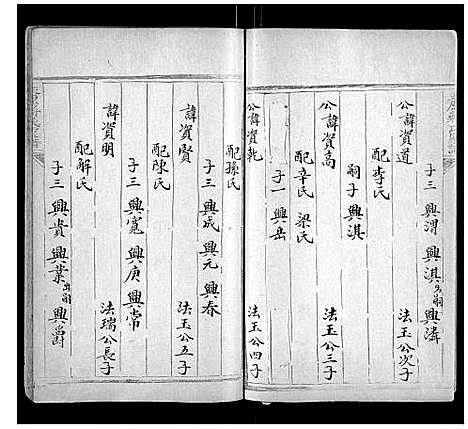 子三 興渭 興淇出嗣 興濤
公諱資道 法玉公次子
配李氏
嗣子興淇
公諱資高 法玉公三子
配辛氏 梁氏
子一 興岳
公諱資乾 法玉公四子
配孫氏
子三 興成 興元 興春
諱資賢 法玉公五子
配陳氏
子三 興寬 興庚 興常
諱資明 法瑞公長子
配解氏
子三 興貴 興業出嗣 興爵